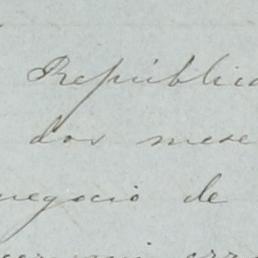 República
dos mese
negocio de